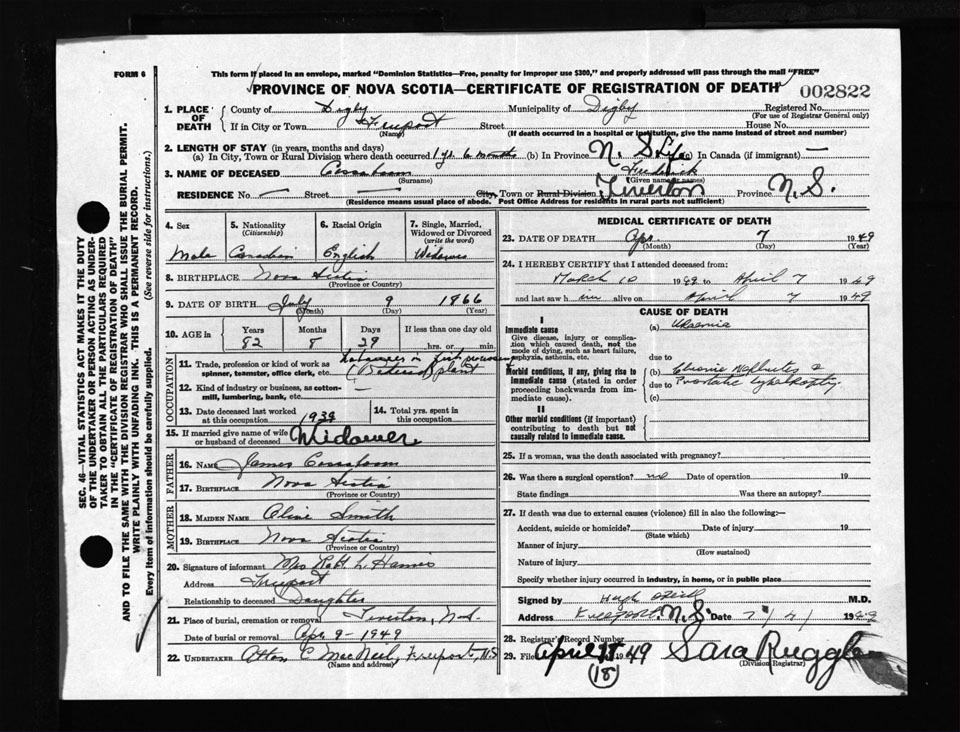 FORM 6
This form if placed in an envelope, marked "Dominion Statistics—Free, penalty for improper use $300," and properly addressed will pass through the mail "FREE"
PROVINCE OF NOVA SCOTIA—CERTIFICATE OF REGISTRATION OF DEATH
002822
1. PLACE OF DEATH
County of Digby Municipality of Digby Registered No.
(For use of Registrar General only)
If in City or Town Freeport Street House No.
(Name) (If death occurred in a hospital or institution, give the name instead of street and number)
2. LENGTH OF STAY (in years, months and days)
(a) In City, Town or Rural Division where death occurred 1 yr. 6 months (b) In Province N. S. Life (c) In Canada (if immigrant) —
3. NAME OF DECEASED Cossaboom Frederick
(Surname) (Given name or names)
RESIDENCE No. — Street — City, Town or Rural Division Tiverton Province N. S.
(Residence means usual place of abode. Post Office Address for residents in rural parts not sufficient)
4. Sex
Male
5. Nationality
(Citizenship)
Canadian
6. Racial Origin
English
7. Single, Married, Widowed or Divorced
(write the word)
Widower
8. BIRTHPLACE Nova Scotia
(Province or Country)
9. DATE OF BIRTH July 9 1866
(Month) (Day) (Year)
10. AGE in
Years Months Days If less than one day old
82 8 29 hrs. or min.
OCCUPATION
11. Trade, profession or kind of work as spinner, teamster, office clerk, etc. Labourer in fish processing plant (Retired)
12. Kind of industry or business, as cotton-mill, lumbering, bank, etc.
13. Date deceased last worked at this occupation 1939
14. Total yrs. spent in this occupation
15. If married give name of wife or husband of deceased Widower
FATHER
16. NAME James Cossaboom
17. BIRTHPLACE Nova Scotia
(Province or Country)
MOTHER
18. MAIDEN NAME Olive Smith
19. BIRTHPLACE Nova Scotia
(Province or Country)
20. Signature of informant Mrs Robt L. Haines
Address Freeport
Relationship to deceased Daughter
21. Place of burial, cremation or removal Tiverton, N.S.
Date of burial or removal Apr 9 - 1949
22. UNDERTAKER C MacNeil, Freeport, N.S
(Name and address)
MEDICAL CERTIFICATE OF DEATH
23. DATE OF DEATH Apr. 7 1949
(Month) (Day) (Year)
24. I HEREBY CERTIFY that I attended deceased from:
March 10 1949 to April 7 1949
and last saw him alive on April 7 1949
CAUSE OF DEATH
I
Immediate cause
Give disease, injury or complication which caused death, not the mode of dying, such as heart failure, asphyxia, asthenia, etc.
(a) Uraemia
due to
Morbid conditions, if any, giving rise to immediate cause (stated in order proceeding backwards from immediate cause).
(b) Chronic Nephritis &
due to Prostatic hypertrophy
(c)
II
Other morbid conditions (if important) contributing to death but not causally related to immediate cause.
25. If a woman, was the death associated with pregnancy?
26. Was there a surgical operation? no Date of operation 19
State findings Was there an autopsy?
27. If death was due to external causes (violence) fill in also the following:—
Accident, suicide or homicide? Date of injury 19
(State which)
Manner of injury
(How sustained)
Nature of injury
Specify whether injury occurred in industry, in home, or in public place
Signed by Hugh M.D.
Address Freeport N.S. Date 7/4/ 1949
28. Registrar's Record Number
29. Filed April 1949 Sara Ruggles
(Division Registrar)
(18)
SEC. 46—VITAL STATISTICS ACT MAKES IT THE DUTY OF THE UNDERTAKER OR PERSON ACTING AS UNDERTAKER TO OBTAIN ALL THE PARTICULARS REQUIRED IN THE "CERTIFICATE OF REGISTRATION OF DEATH" AND TO FILE THE SAME WITH THE DIVISION REGISTRAR WHO SHALL ISSUE THE BURIAL PERMIT.
WRITE PLAINLY WITH UNFADING INK. THIS IS A PERMANENT RECORD.
Every item of information should be carefully supplied. (See reverse side for instructions.)